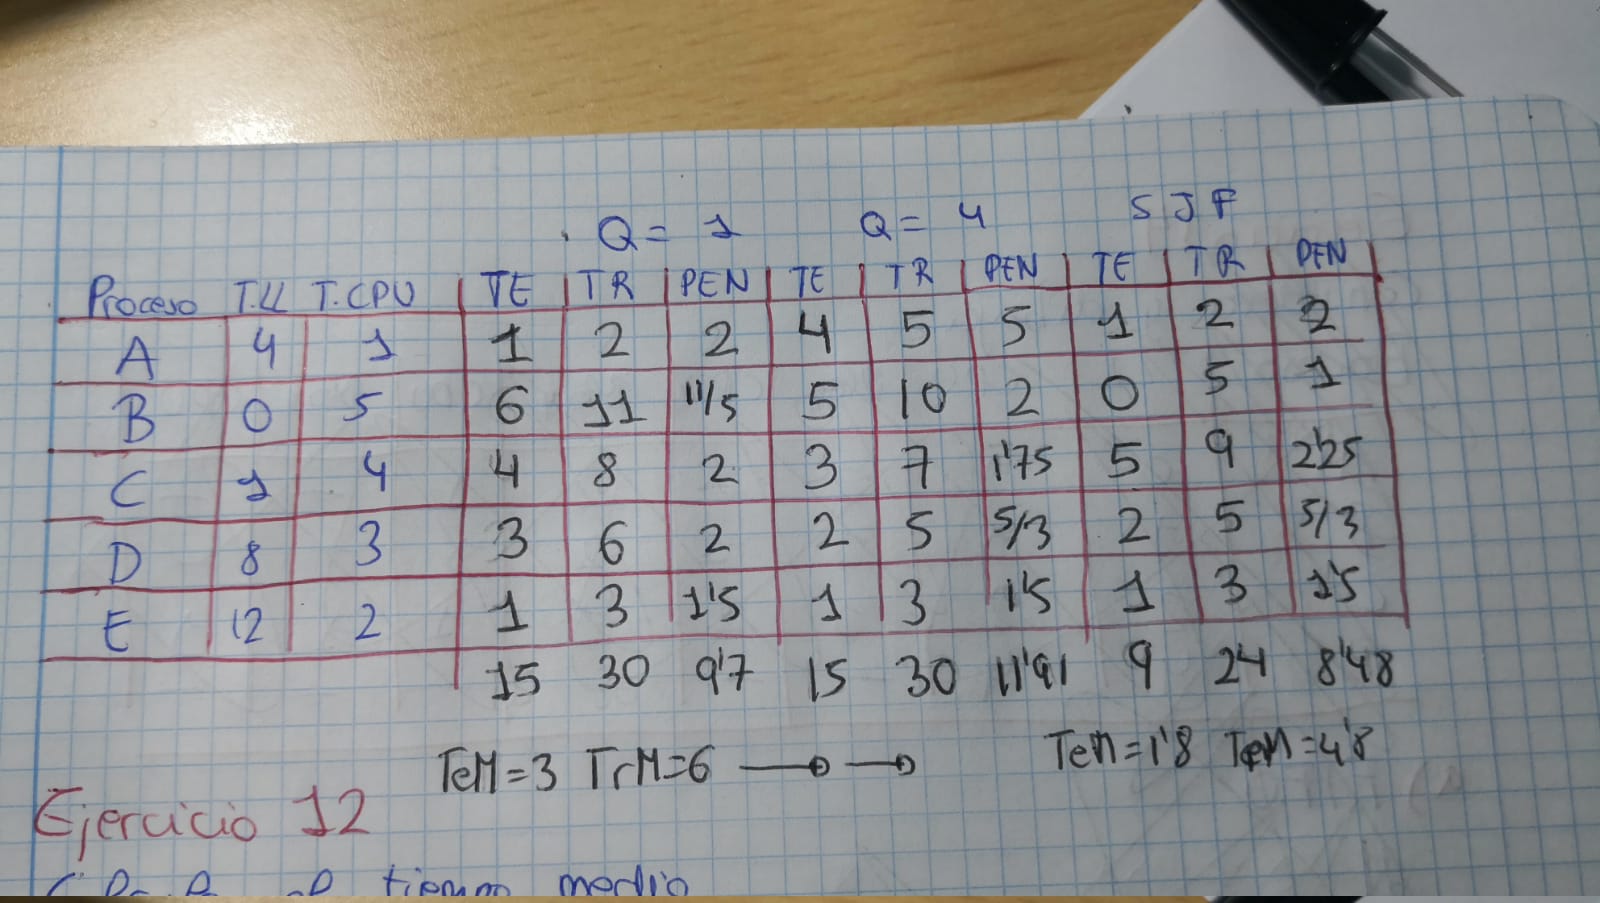 Q= 1 Q= 4 SJF
Proceso T.LL T.CPU TE TR PEN TE TR PEN TE TR PEN
A 4 1 1 2 2 4 5 5 1 2 2
B 0 5 6 11 11/5 5 10 2 0 5 1
C 1 4 4 8 2 3 7 1'75 5 9 2'25
D 8 3 3 6 2 2 5 5/3 2 5 5/3
E 12 2 1 3 1'5 1 3 1'5 1 3 1'5
15 30 9'7 15 30 11'91 9 24 8'48
TeM=3 TrM=6 → → TeM=1'8 TrM=4'8
Ejercicio 12
tiempo medio